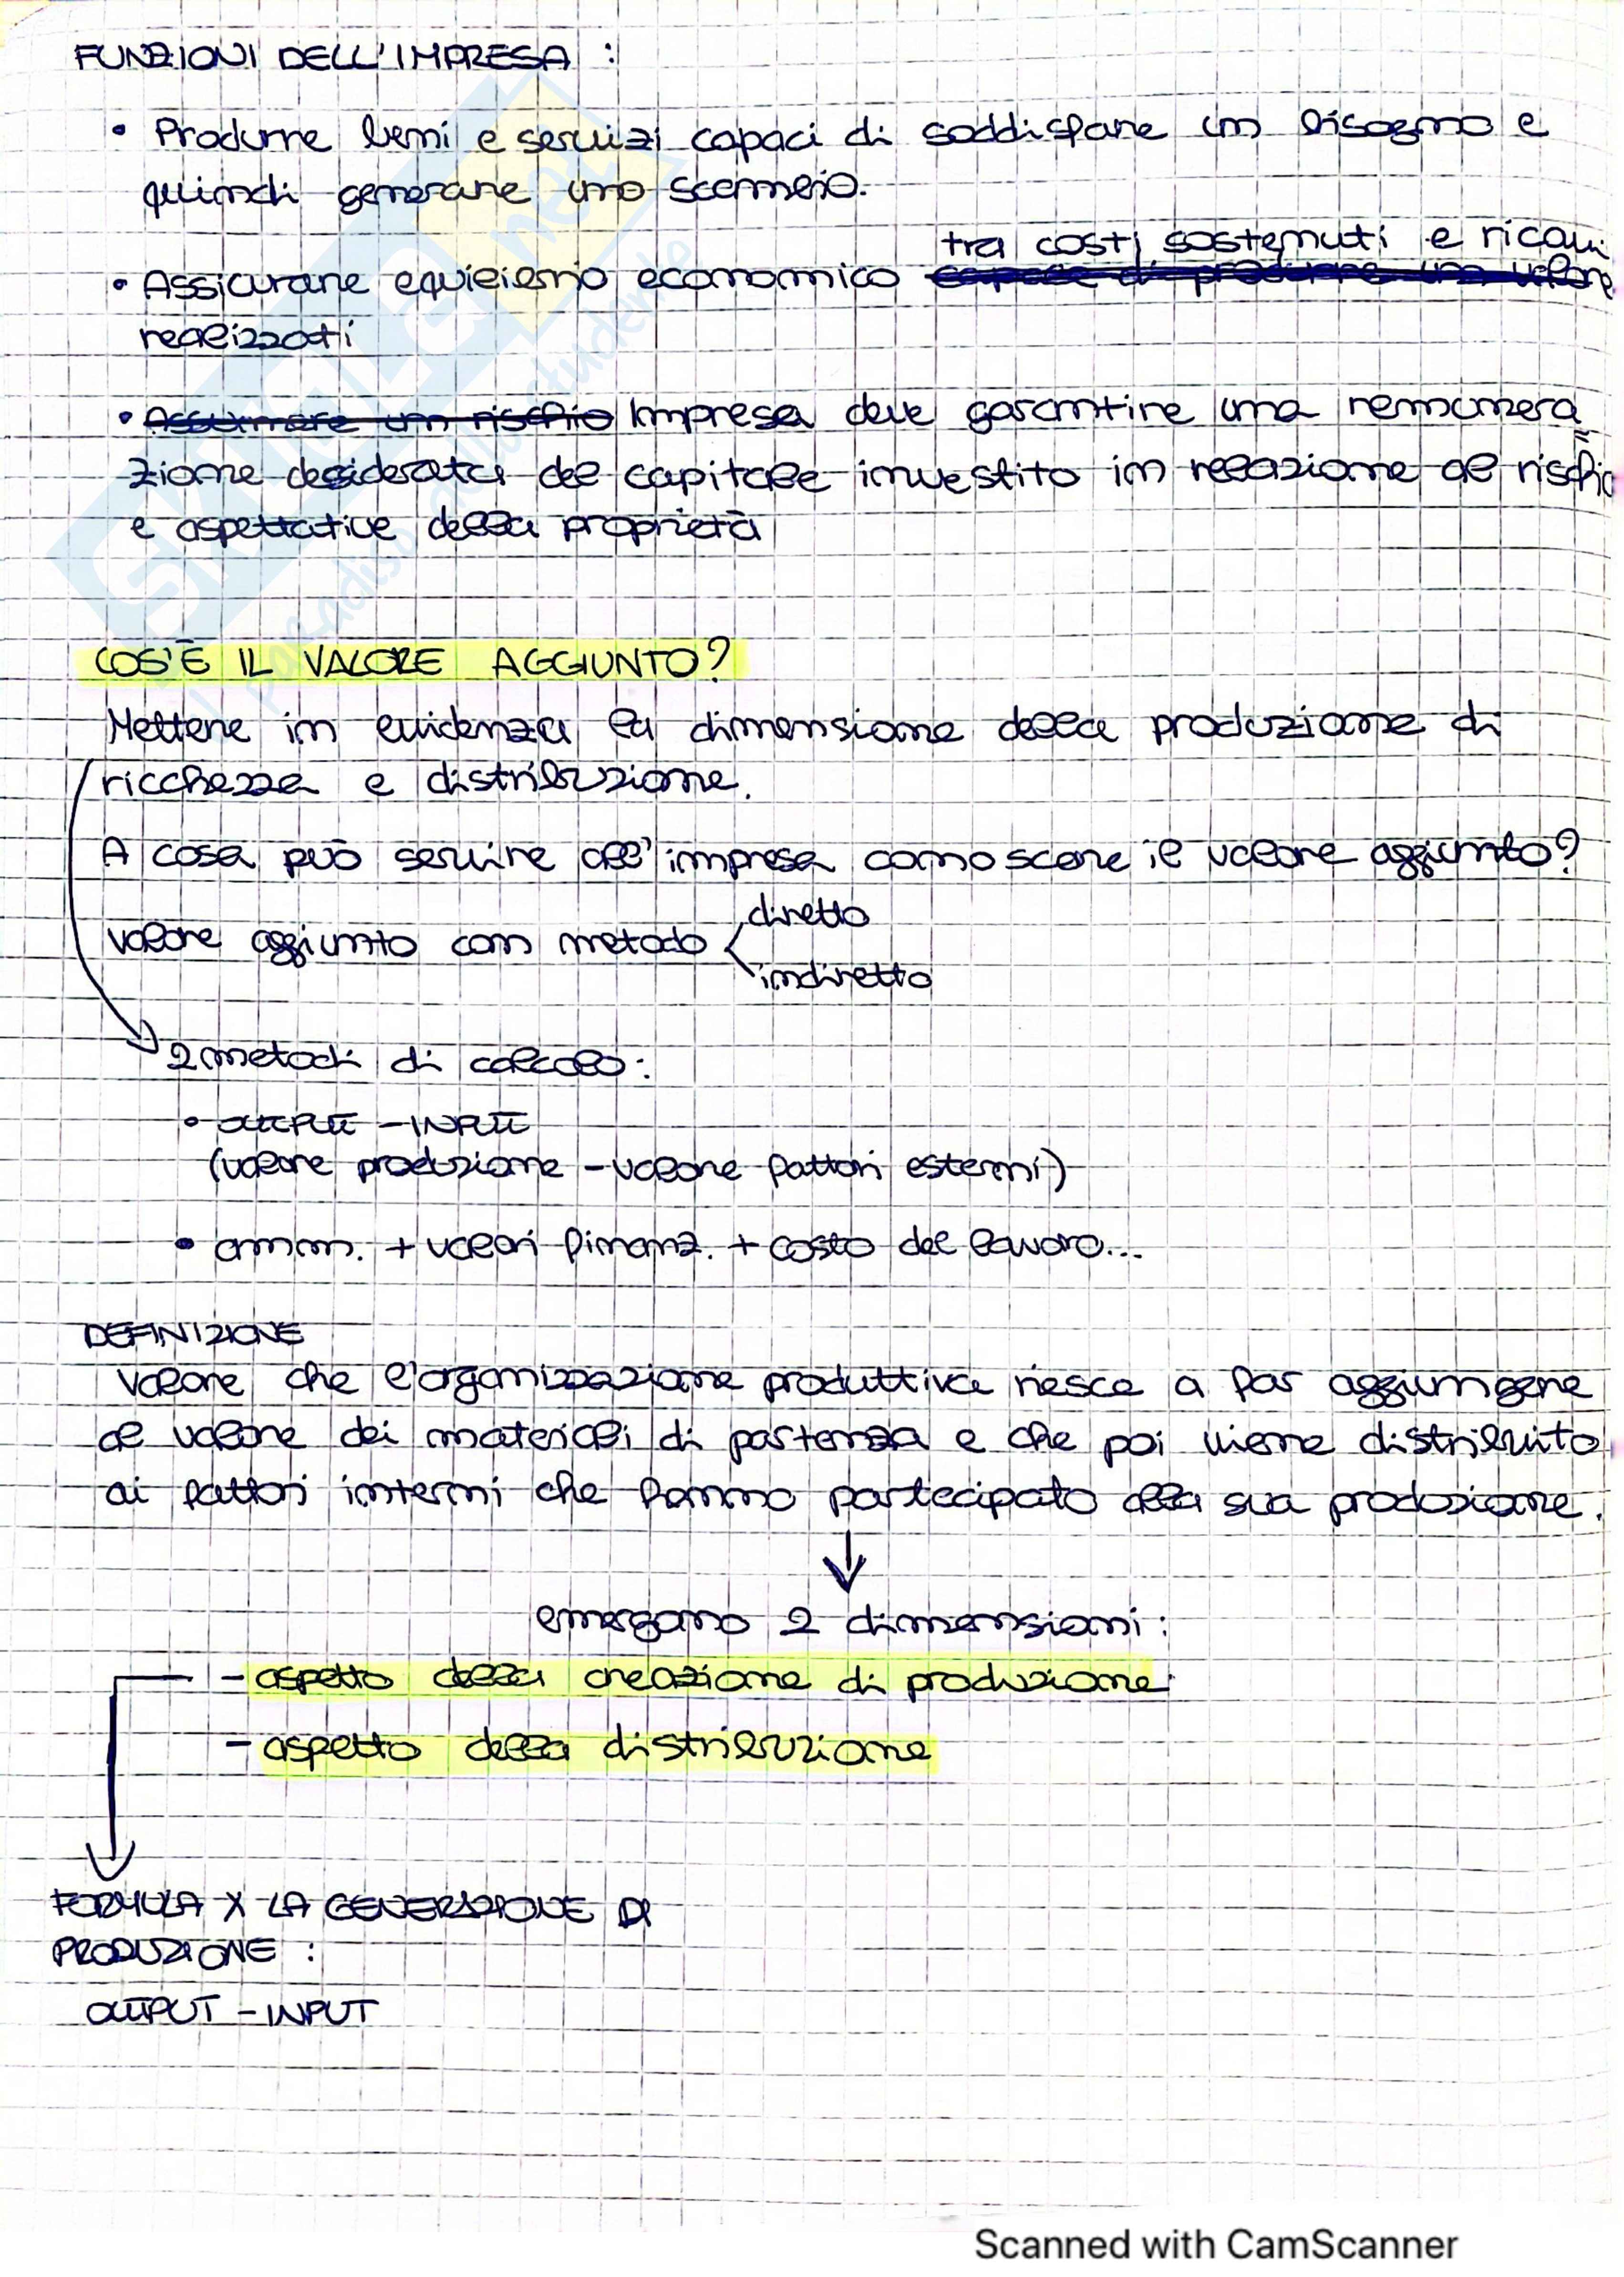 FUNZIONI DELL'IMPRESA :
• Produrre beni e servizi capaci di soddisfare un bisogno e
quindi generare uno scambio.
tra costi sostenuti e ricavi
• Assicurare equilibrio economico capace di produrre un valore
realizzati
• Assumere un rischio Impresa deve garantire una remunera
zione desiderata del capitale investito in relazione al rischio
e aspettative della proprietà
COS'È IL VALORE AGGIUNTO?
Mettere in evidenza la dimensione della produzione di
ricchezza e distribuzione.
A cosa può servire all'impresa conoscere il valore aggiunto?
diretto
valore aggiunto con metodo
indiretto
2 metodi di calcolo:
• OUTPUT - INPUT
(valore produzione - valore fattori esterni)
• amm. + valori finanz. + costo del lavoro...
DEFINIZIONE
Valore che l'organizzazione produttiva riesce a far aggiungere
al valore dei materiali di partenza e che poi viene distribuito
ai fattori interni che hanno partecipato alla sua produzione.
emergono 2 dimensioni:
- aspetto della creazione di produzione
- aspetto della distribuzione
FORMULA X LA GENERAZIONE DI
PRODUZIONE :
OUTPUT - INPUT
Scanned with CamScanner